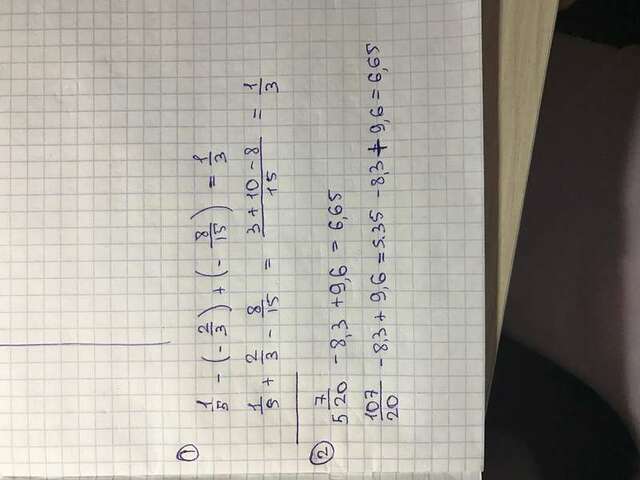 ①
1/5 - (- 2/3) + (- 8/15) = 1/3
1/5 + 2/3 - 8/15 = (3 + 10 - 8)/15 = 1/3
②
5 7/20 - 8,3 + 9,6 = 6,65
107/20 - 8,3 + 9,6 = 5.35 - 8,3 + 9,6 = 6,65